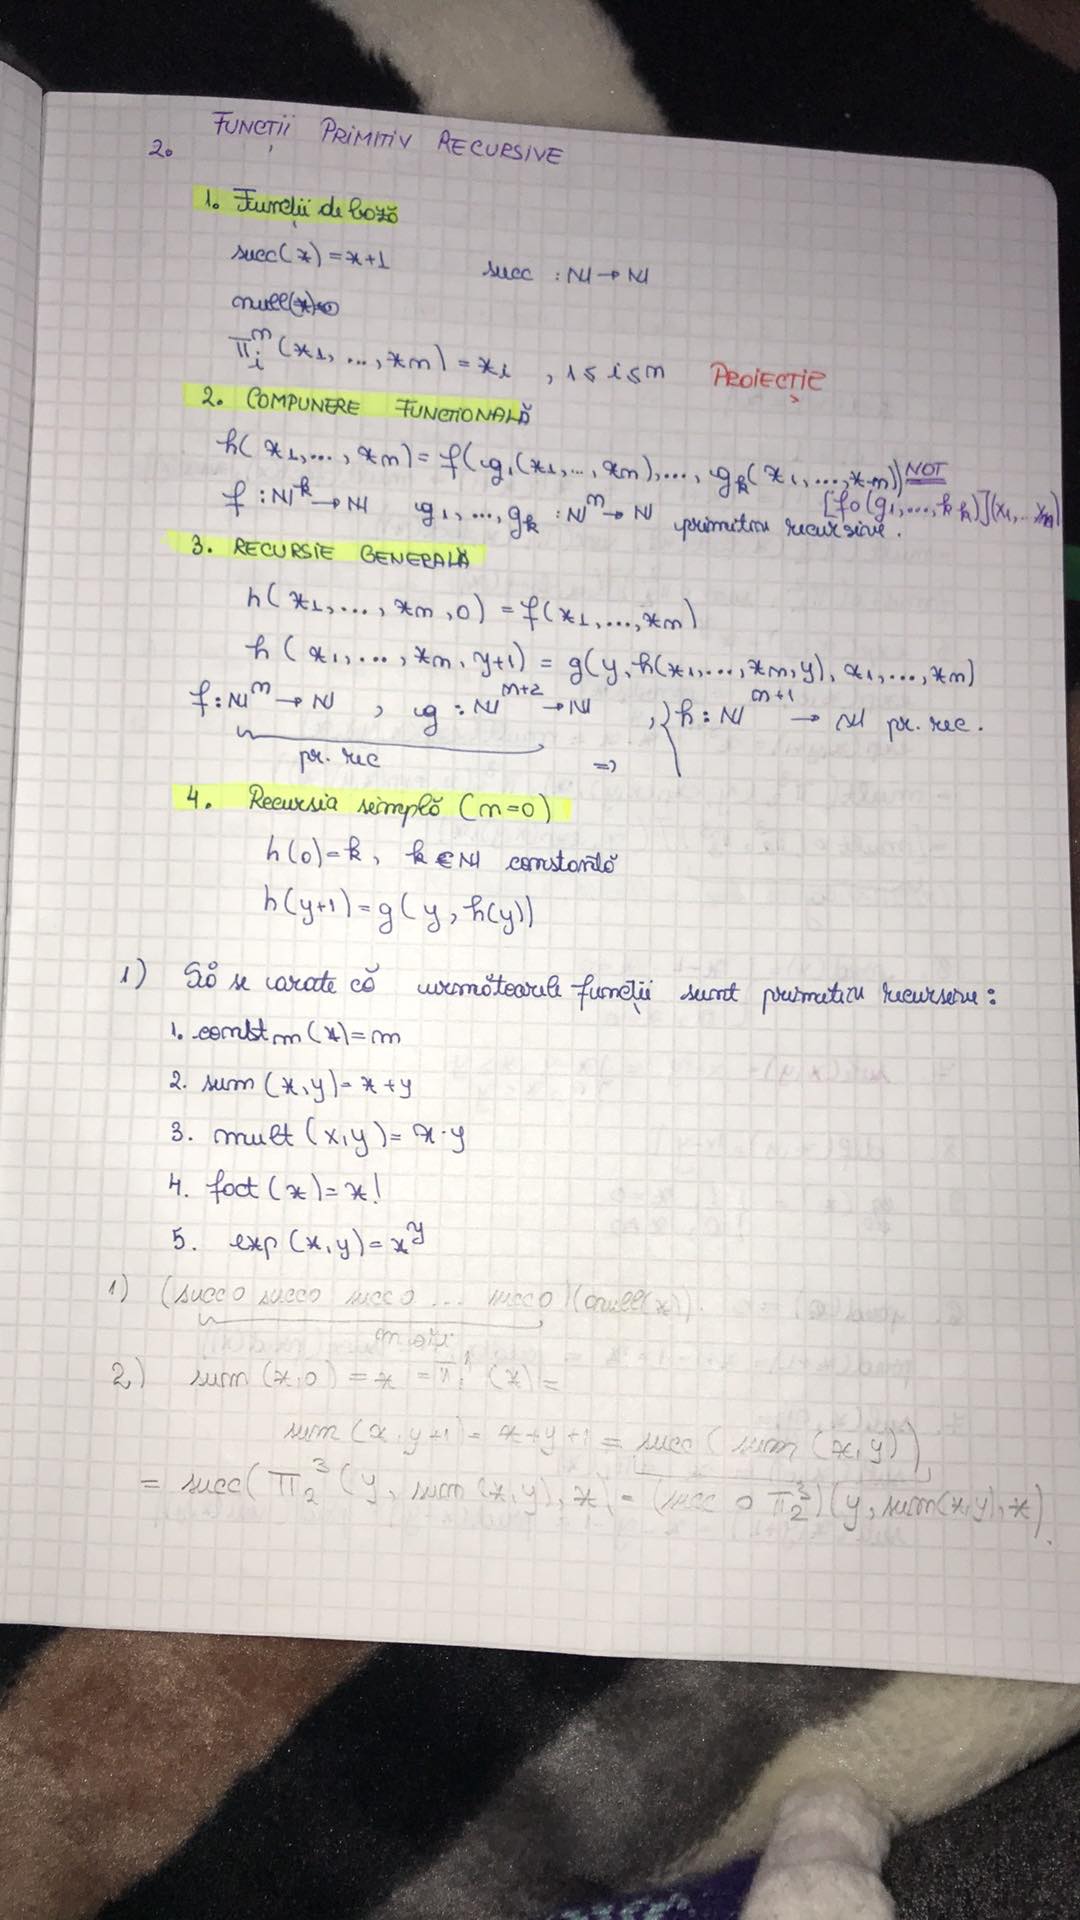 FUNCȚII PRIMITIV RECURSIVE
2.
1. Funcții de bază
succ(x)=x+1 succ : ℕ→ℕ
null(x)=0
π_i^n (x1, ..., xn) = xi , 1≤i≤n PROIECȚIE
2. COMPUNERE FUNCTIONALĂ
h( x1,..., xn)= f( g1(x1,..., xn),..., gk(x1,...,xn)) NOT
[fo(g1,...,gk)](x1,...xn)
f : ℕ^k → ℕ g1,...,gk : ℕ^n → ℕ primitiv recursive.
3. RECURSIE GENERALĂ
h( x1,..., xn, 0) = f(x1,...,xn)
h ( x1,..., xn, y+1) = g(y, h(x1,..., xn, y), x1,..., xn)
f : ℕ^n → ℕ , g : ℕ^{n+2} → ℕ ,} h : ℕ^{n+1} → ℕ pr. rec.
pr. rec =>
4. Recursia simplă (n=0)
h(0)=k, k∈ℕ constantă
h(y+1)=g(y, h(y))
1) Să se arate că următoarele funcții sunt primitiv recursive:
1. const m (x)=m
2. sum (x,y)= x+y
3. mult (x,y)= x·y
4. fact (x)=x!
5. exp (x,y)=x^y
1) (succ o succ o succ o ... succ o)(null(x)).
m ori
2) sum (x,0) = x = π_1^1 (x) =
sum (x, y+1) = x+y+1 = succ ( sum (x,y))
= succ( π_2^3 (y, sum(x,y), x) = (succ o π_2^3)(y, sum(x,y), x).